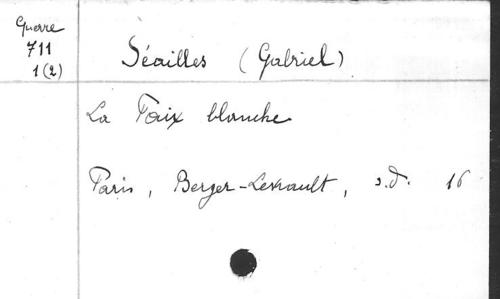 Guerre
711
1(2)
Séailles (Gabriel)
La Paix blanche
Paris, Berger-Levrault, s.d. 16